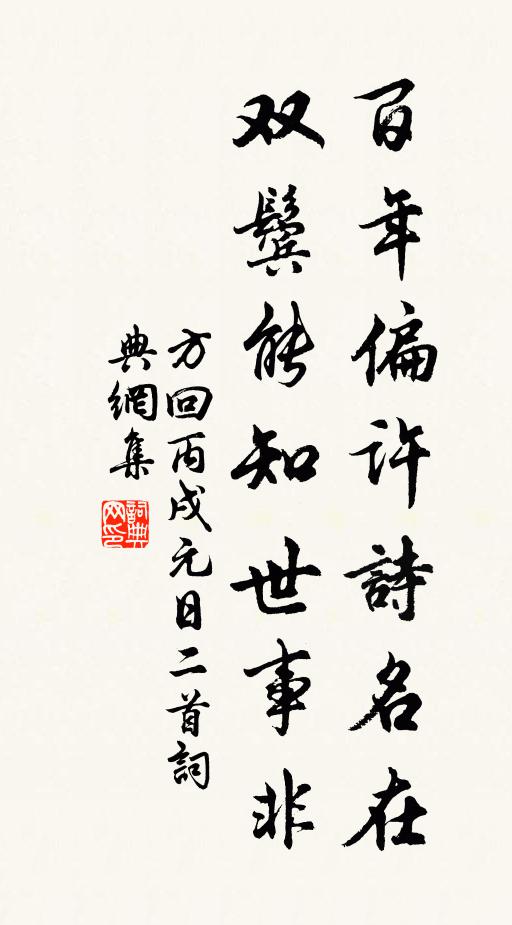 百年偏许詩名在
双鬓能知世事非
方回丙戌元日二首詞
典網集
詞典
网印